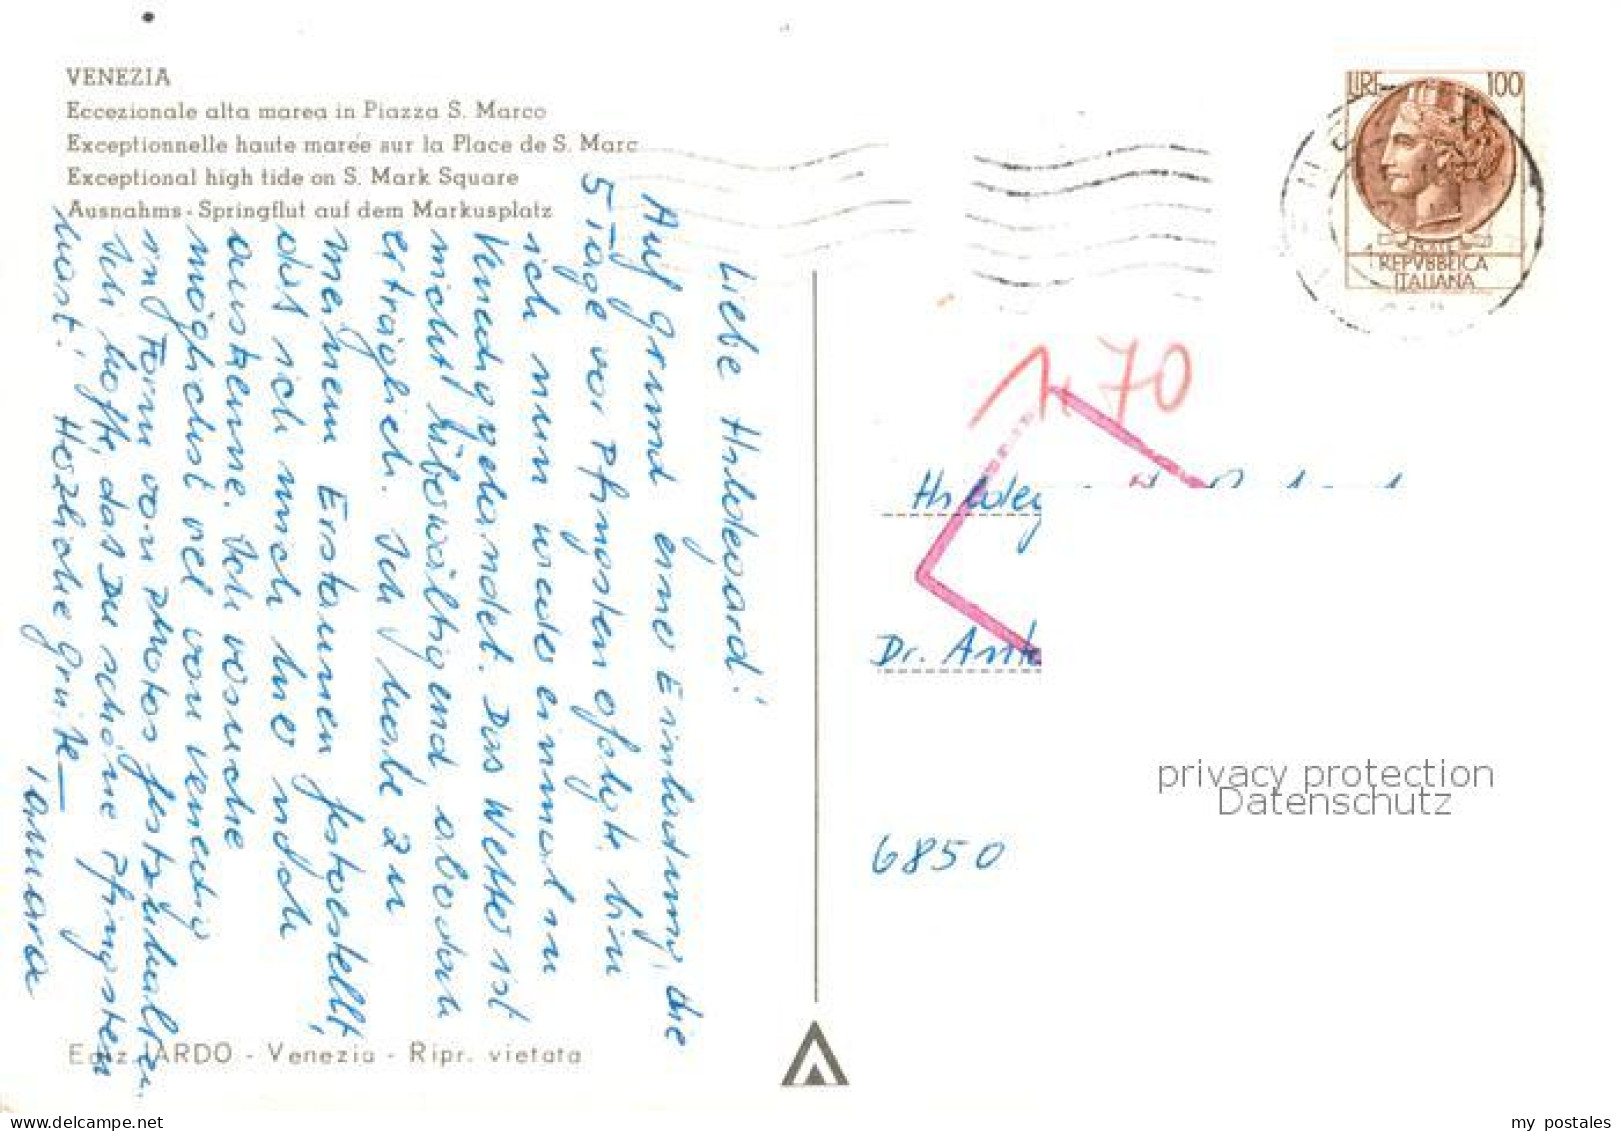 VENEZIA
Eccezionale alta marea in Piazza S. Marco
Exceptionnelle haute marée sur la Place de S. Marc
Exceptional high tide on S. Mark Square
Ausnahms-Springflut auf dem Markusplatz
Liebe Hildegard!
Auf Grund einer Einladung, die
5 Tage vor Pfingsten erfolgte bin
ich nun wieder einmal in
Venedig gelandet. Das Wetter ist
nicht überwältigend aber doch
erträglich. Ich habe zu
meinem Erstaunen festgestellt,
daß ich mich hier noch
auskenne. Ich versuche
möglichst viel von Venedig
in Form von Photos festzuhalten.
Ich hoffe, daß Du schöne Pfingsten
hast! Herzliche Grüße
Tamara
Ediz. ARDO - Venezia - Ripr. vietata
LIRE 100
POSTE
REPVBBLICA
ITALIANA
70
Hildeg
Dr. Ant
6850
privacy protection
Datenschutz
my_postales